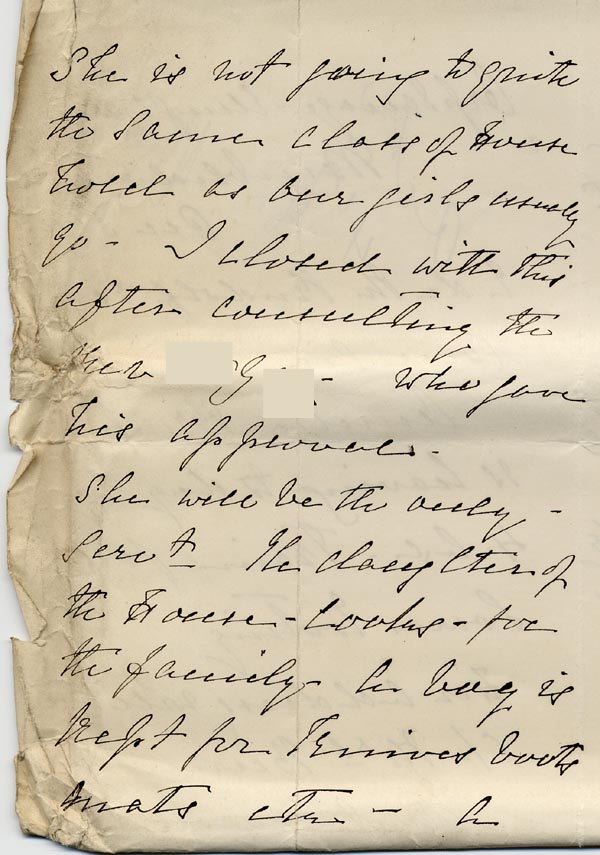 She is not going to quite
the same class of House
hold as our girls usually
go - I closed with this
after consulting the
Rev - who gave
his approval.
She will be the only -
Servt The daughter of
the House - cooks - for
the family. A boy is
kept for Knives boots
mats etc - A